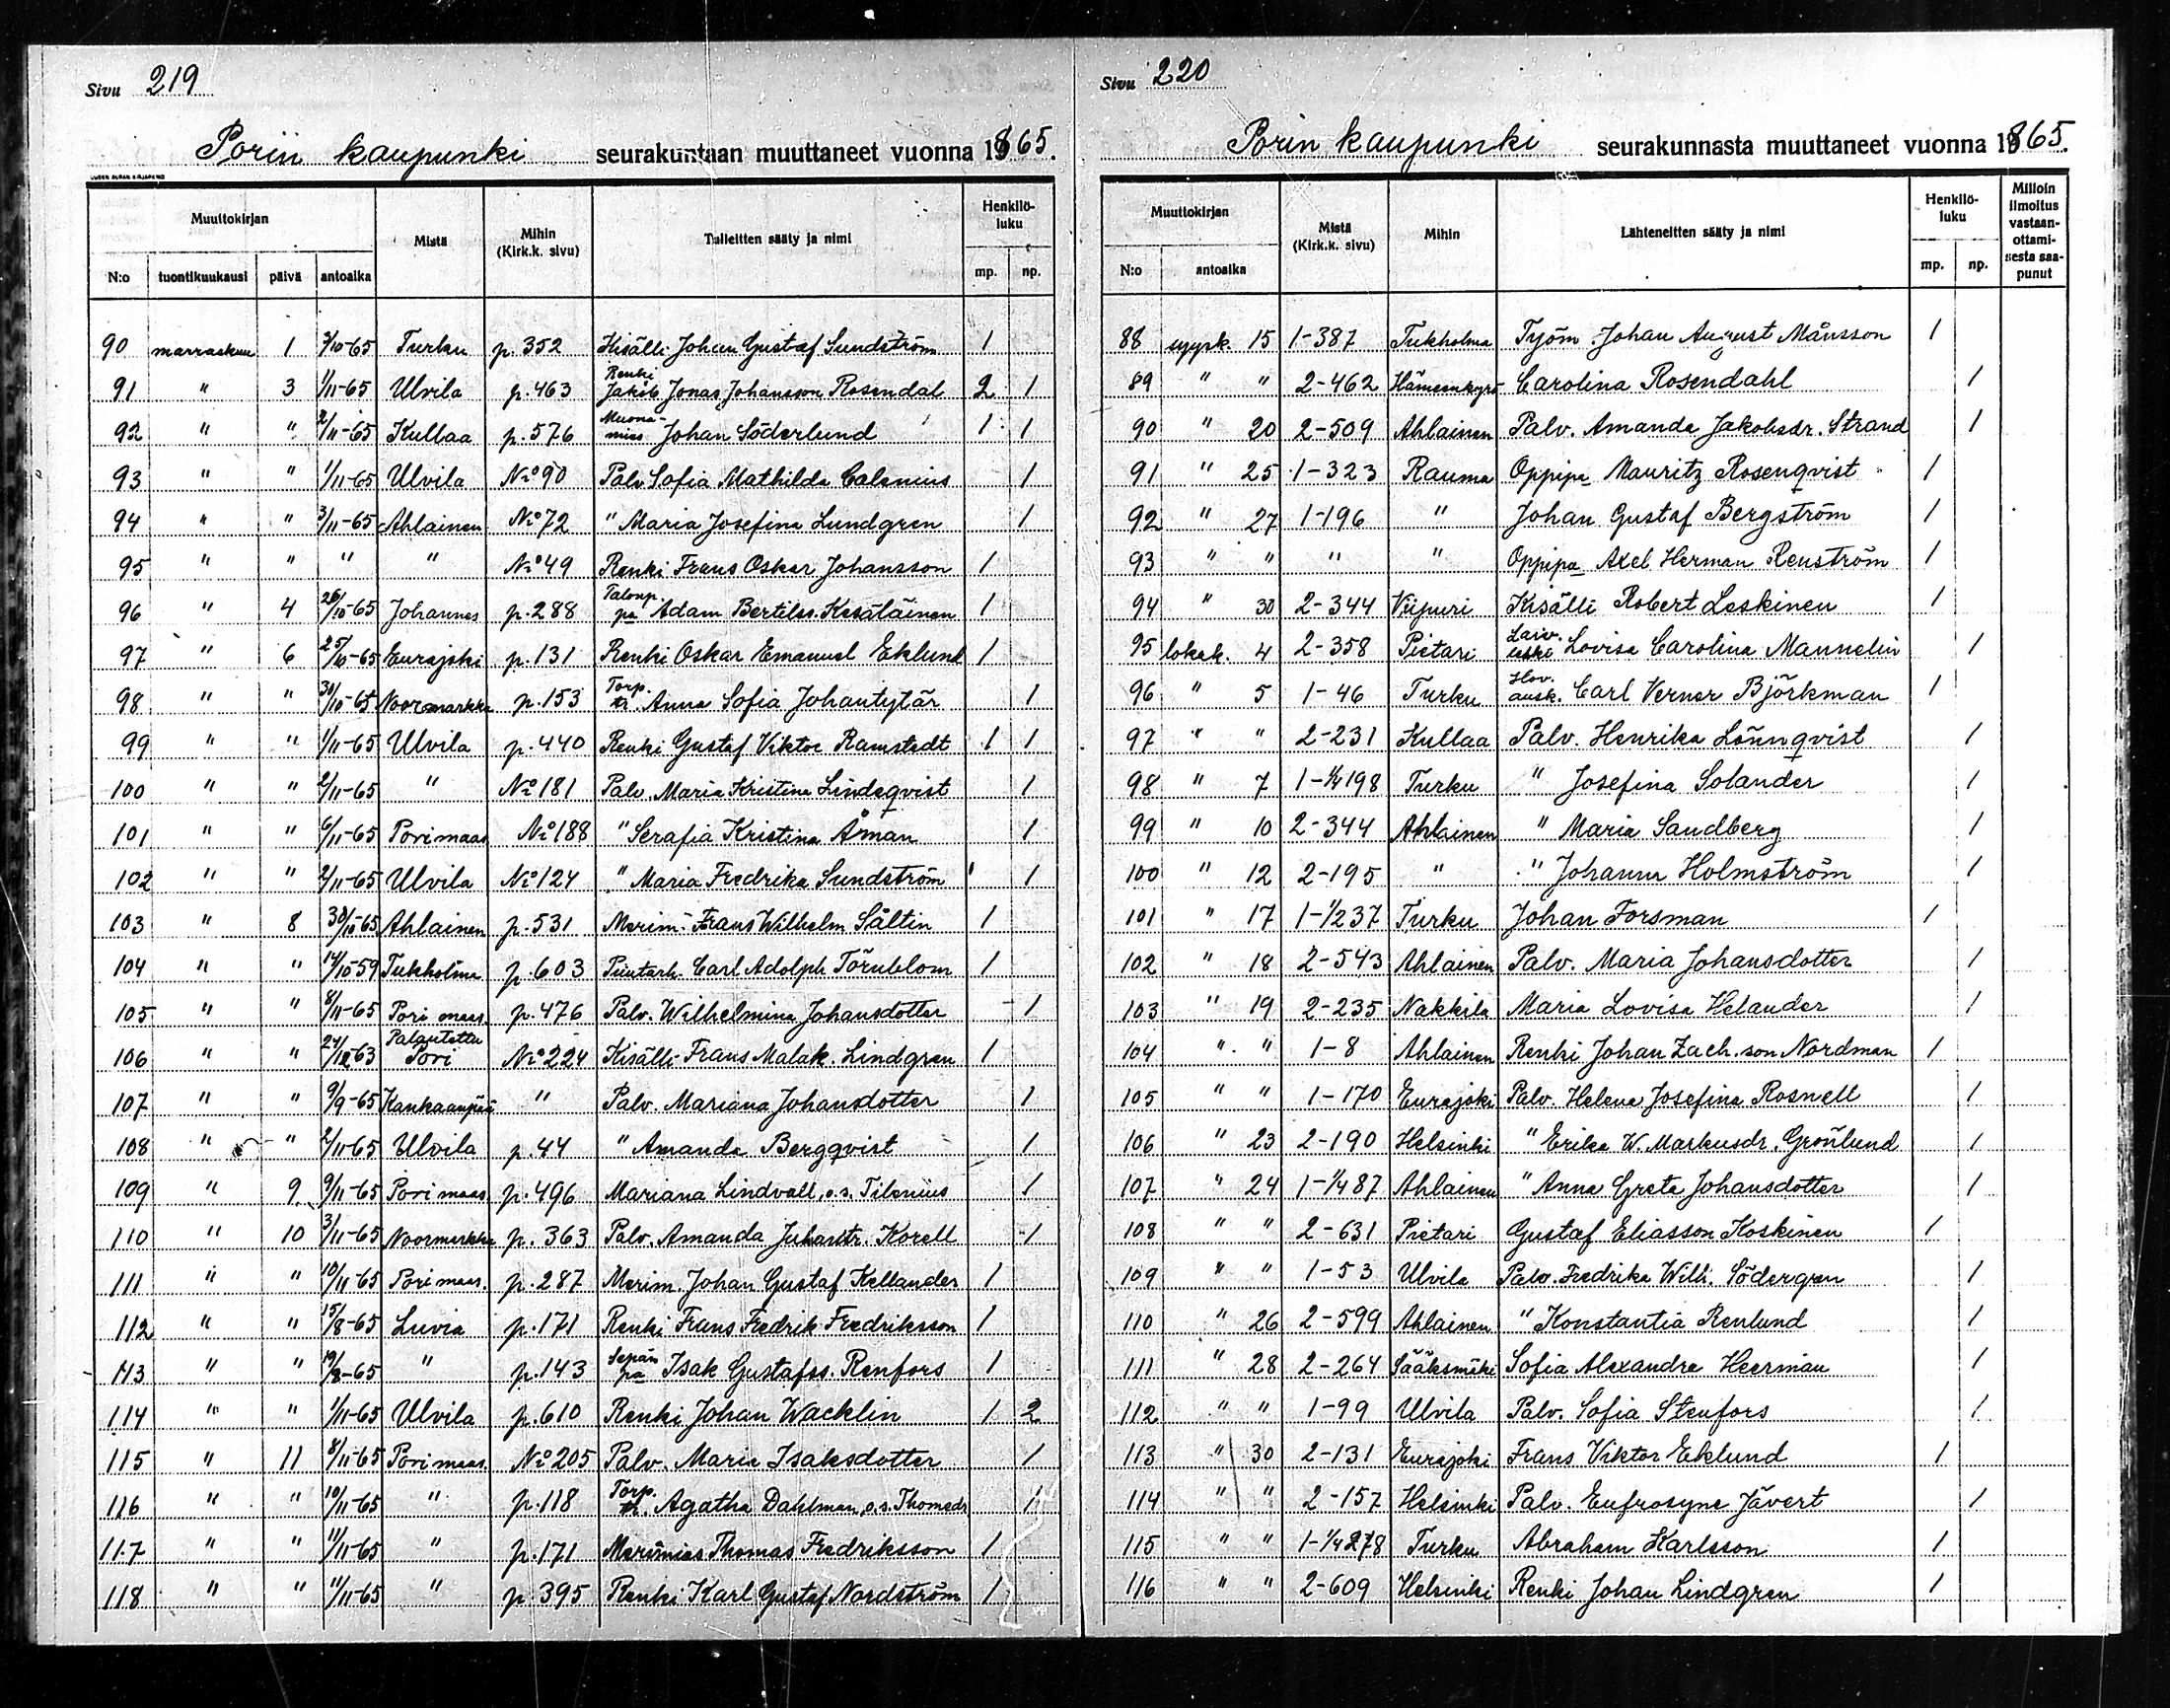 Sivu 219
Porin kaupunki seurakuntaan muuttaneet vuonna 1865.
UUDEN AURAN KIRJAPAINO
Muuttokirjan Mistä Mihin (Kirk.k. sivu) Tulleitten sääty ja nimi Henkilö-luku
N:o tuontikuukausi päivä antoaika mp. np.
90 marraskuu 1 3/10-65 Turku p. 352 Kisälli Johan Gustaf Sundström 1
91 " 3 1/11-65 Ulvila p. 463 Renki Jakob Jonas Johansson Rosendal 2 1
92 " " 2/11-65 Kullaa p. 576 Muona-mies Johan Söderlund 1 1
93 " " 1/11-65 Ulvila No 90 Palv. Sofia Mathilda Calamius 1
94 " " 3/11-65 Ahlainen No 72 " Maria Josefina Lundgren 1
95 " " " " No 49 Renki Frans Oskar Johansson 1
96 " 4 26/10-65 Johannes p. 288 Talonp. pa Adam Bertilss. Kesäläinen 1
97 " 6 25/10-65 Eurajoki p. 131 Renki Oskar Emanuel Eklund 1
98 " " 30/10-65 Noormarkku p. 153 Torp. tr. Anna Sofia Johantytär 1
99 " " 1/11-65 Ulvila p. 440 Renki Gustaf Viktor Ramstedt 1 1
100 " " 2/11-65 " No 181 Palv. Maria Kristina Lindeqvist 1
101 " " 6/11-65 Pori maas. No 188 " Serafia Kristina Åman 1
102 " " 2/11-65 Ulvila No 124 " Maria Fredrika Sundström 1
103 " 8 30/10-65 Ahlainen p. 531 Merim. Frans Wilhelm Sältin 1
104 " " 14/10-59 Tukholma p. 603 Puutarh. Carl Adolph Törnblom 1
105 " " 8/11-65 Pori maas. p. 476 Palv. Wilhelmina Johansdotter 1
106 " " 24/12-63 Palautettu Pori No 224 Kisälli Frans Malak. Lindgren 1
107 " " 9/9-65 Kankaanpää " Palv. Mariana Johansdotter 1
108 " " 2/11-65 Ulvila p. 44 " Amanda Bergqvist 1
109 " 9 9/11-65 Pori maas. p. 496 Mariana Lindvall, o.s. Tilenius 1
110 " 10 3/11-65 Noormarkku p. 363 Palv. Amanda Juhantr. Korell 1
111 " " 10/11-65 Pori maas. p. 287 Merim. Johan Gustaf Kellander 1
112 " " 15/8-65 Luvia p. 171 Renki Frans Fredrik Fredriksson 1
113 " " 19/8-65 " p. 143 Sepän pa Isak Gustafss. Renfors 1
114 " " 1/11-65 Ulvila p. 610 Renki Johan Wacklin 1 2
115 " 11 8/11-65 Pori maas. No 205 Palv. Maria Isaksdotter 1
116 " " 10/11-65 " p. 118 Torp. tr. Agatha Dahlman, o.s. Thomedr 1
117 " " 11/11-65 " p. 171 Merimies Thomas Fredriksson 1
118 " " 11/11-65 " p. 395 Renki Karl Gustaf Nordström 1
Sivu 220
Porin kaupunki seurakunnasta muuttaneet vuonna 1865.
Muuttokirjan Mistä (Kirk.k. sivu) Mihin Lähteneitten sääty ja nimi Henkilö-luku Milloin ilmoitus vastaan-ottami-sesta saa-punut
N:o antoaika mp. np.
88 syysk. 15 1-387 Tukholma Työm. Johan August Månsson 1
89 " " 2-462 Hämeenkyrö Carolina Rosendahl 1
90 " 20 2-509 Ahlainen Palv. Amanda Jakobsdr. Strand 1
91 " 25 1-323 Rauma Oppipa Mauritz Rosenqvist 1
92 " 27 1-196 " Johan Gustaf Bergström 1
93 " " " " Oppipa Axel Herman Renström 1
94 " 30 2-344 Viipuri Kisälli Robert Leskinen 1
95 lokak. 4 2-358 Pietari Laiv. leski Lovisa Carolina Mannelin 1
96 " 5 1-46 Turku Hov. ausk. Carl Verner Björkman 1
97 " " 2-231 Kullaa Palv. Henrika Lönnqvist 1
98 " 7 1-1/4 198 Turku " Josefina Solander 1
99 " 10 2-344 Ahlainen " Maria Sandberg 1
100 " 12 2-195 " " Johanna Holmström 1
101 " 17 1-1/2 37 Turku Johan Forsman 1
102 " 18 2-543 Ahlainen Palv. Maria Johansdotter 1
103 " 19 2-235 Nakkila Maria Lovisa Helander 1
104 " " 1-8 Ahlainen Renki Johan Zach.son Nordman 1
105 " " 1-170 Eurajoki Palv. Helena Josefina Rosnell 1
106 " 23 2-190 Helsinki " Erika W. Markusdr. Grönlund 1
107 " 24 1-1/4 87 Ahlainen " Anna Greta Johansdotter 1
108 " " 2-631 Pietari Gustaf Eliasson Koskinen 1
109 " " 1-53 Ulvila Palv. Fredrika Wilh. Södergren 1
110 " 26 2-599 Ahlainen " Konstantia Renlund 1
111 " 28 2-264 Sääksmäki Sofia Alexandra Heerman 1
112 " " 1-99 Ulvila Palv. Sofia Stenfors 1
113 " 30 2-131 Eurajoki Frans Viktor Eklund 1
114 " " 2-157 Helsinki Palv. Eufrosyne Jävert 1
115 " " 1-1/4 278 Turku Abraham Karlsson 1
116 " " 2-609 Helsinki Renki Johan Lindgren 1